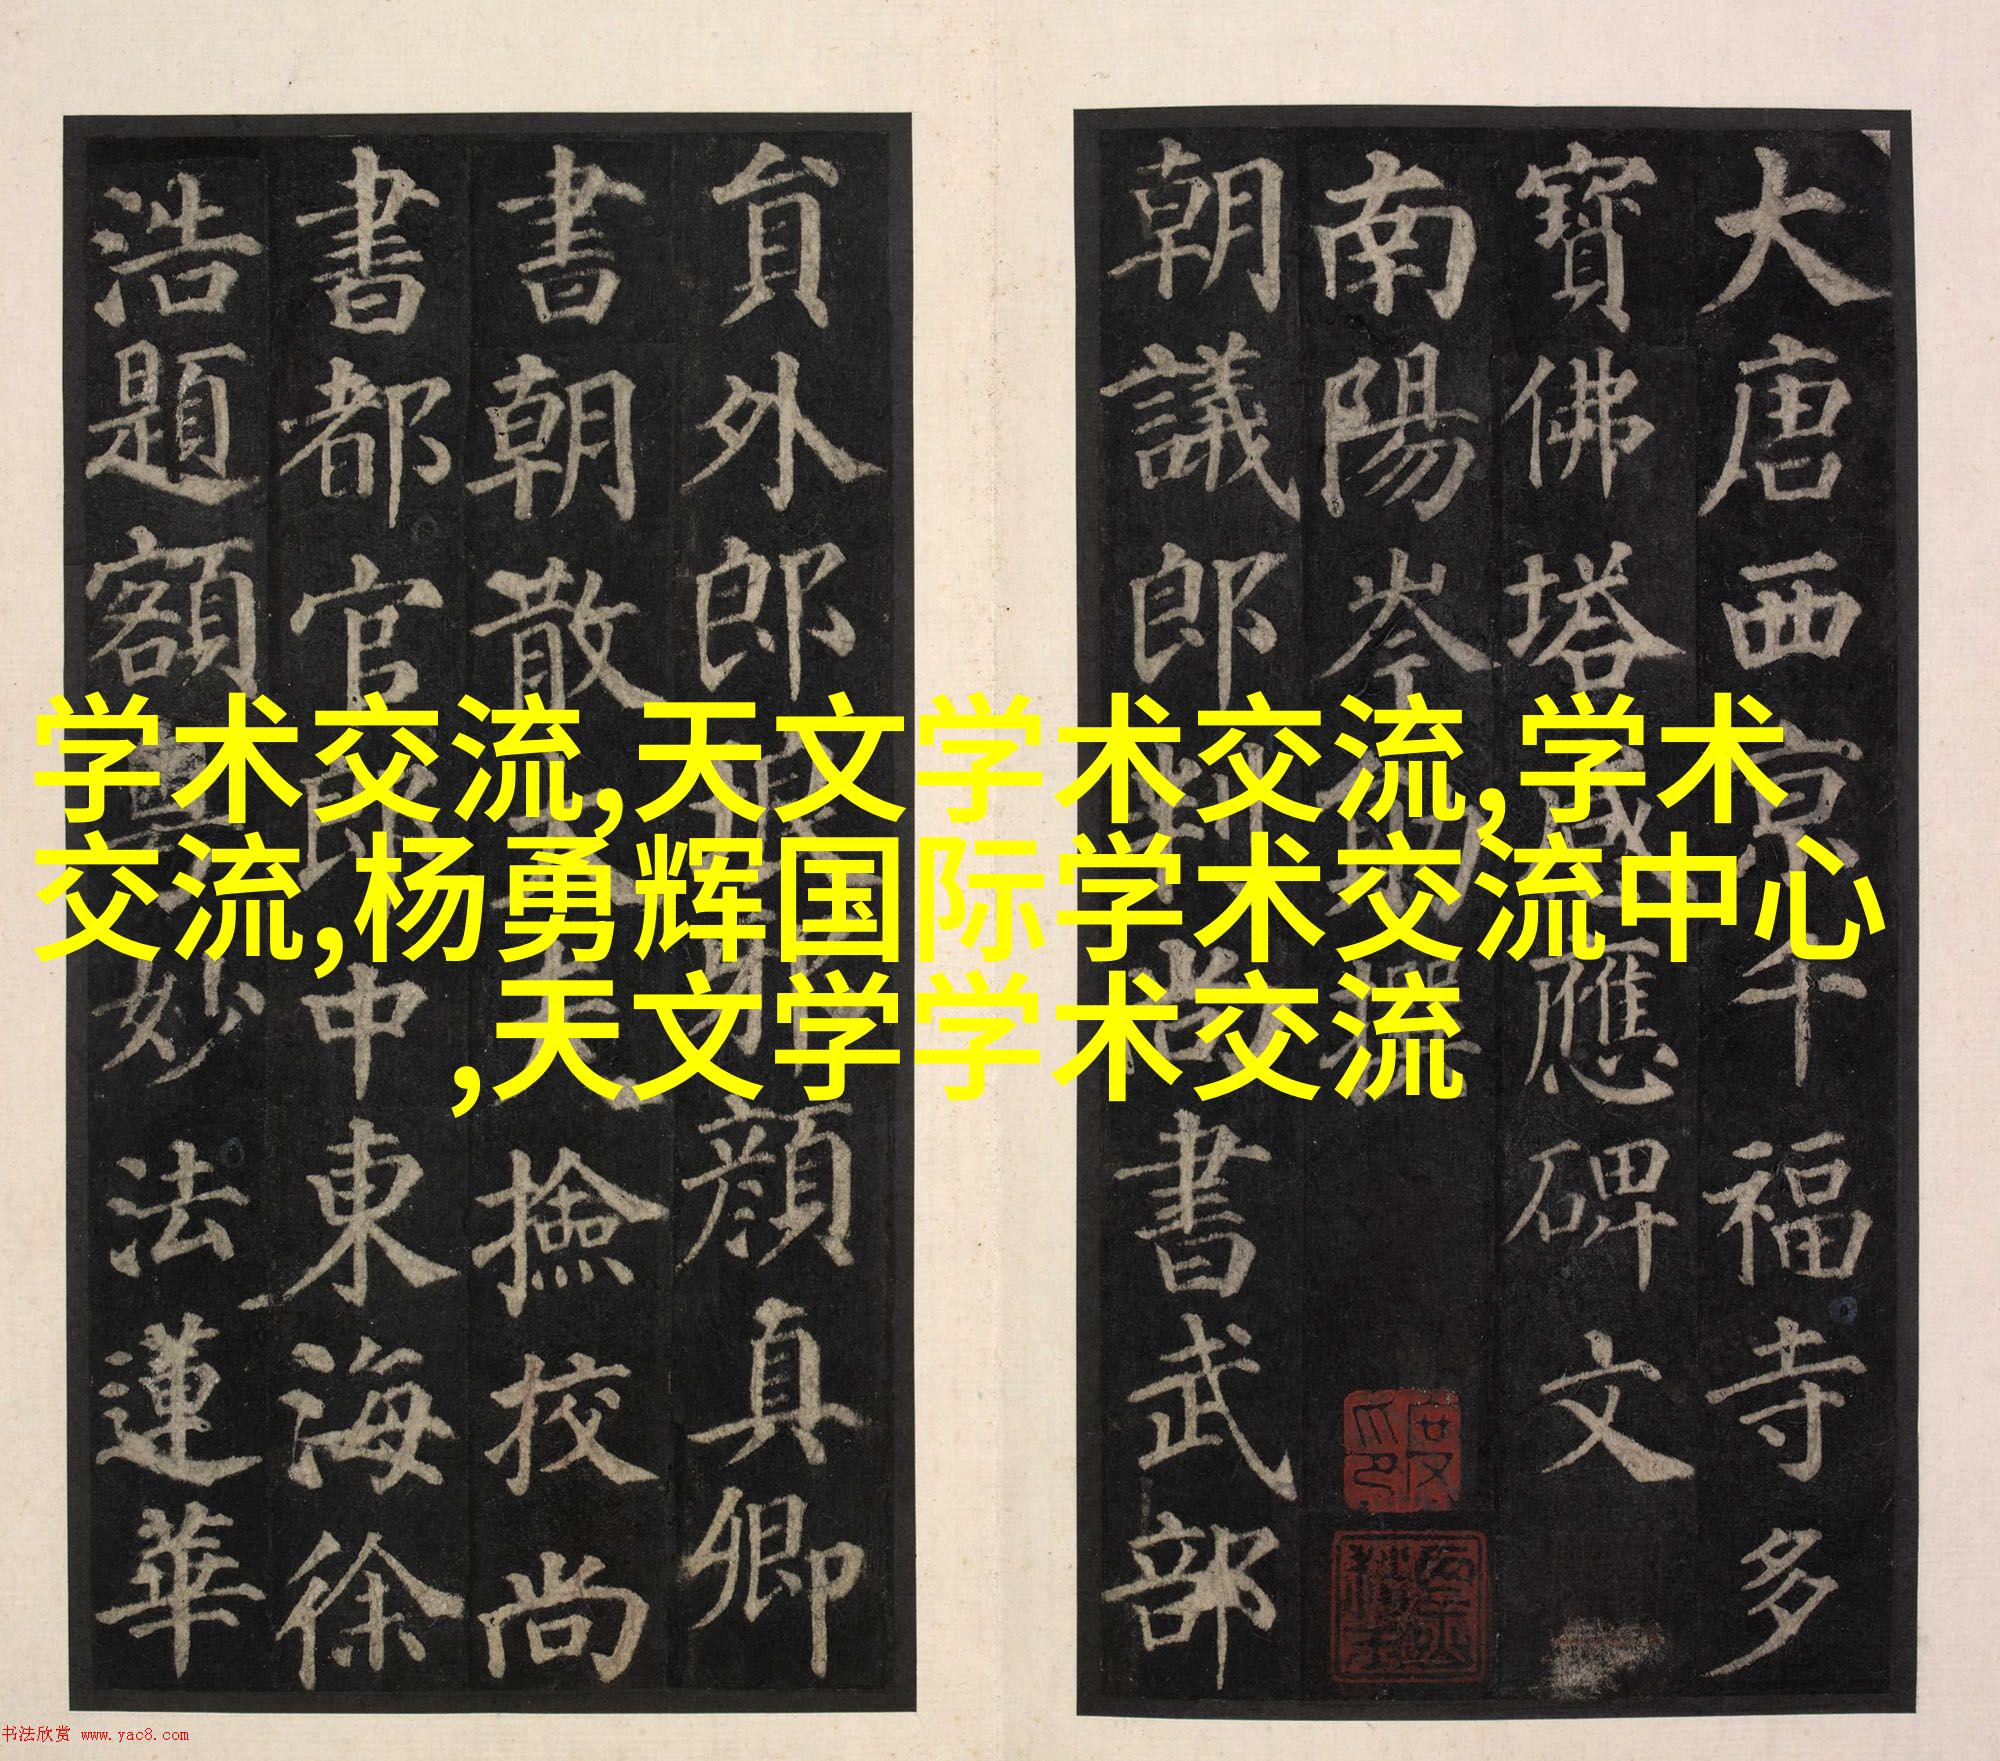 大唐西京千福寺多
寶佛塔感應碑文
南陽岑勛撰
朝議郎判尚書武部
貟外郎琅邪顏真卿
書朝散大夫撿校尚
書都官郎中東海徐
浩題額粤妙法蓮華
学术交流,天文学术交流,学术
交流,杨勇辉国际学术交流中心
,天文学学术交流
书法欣赏 www.yac8.com